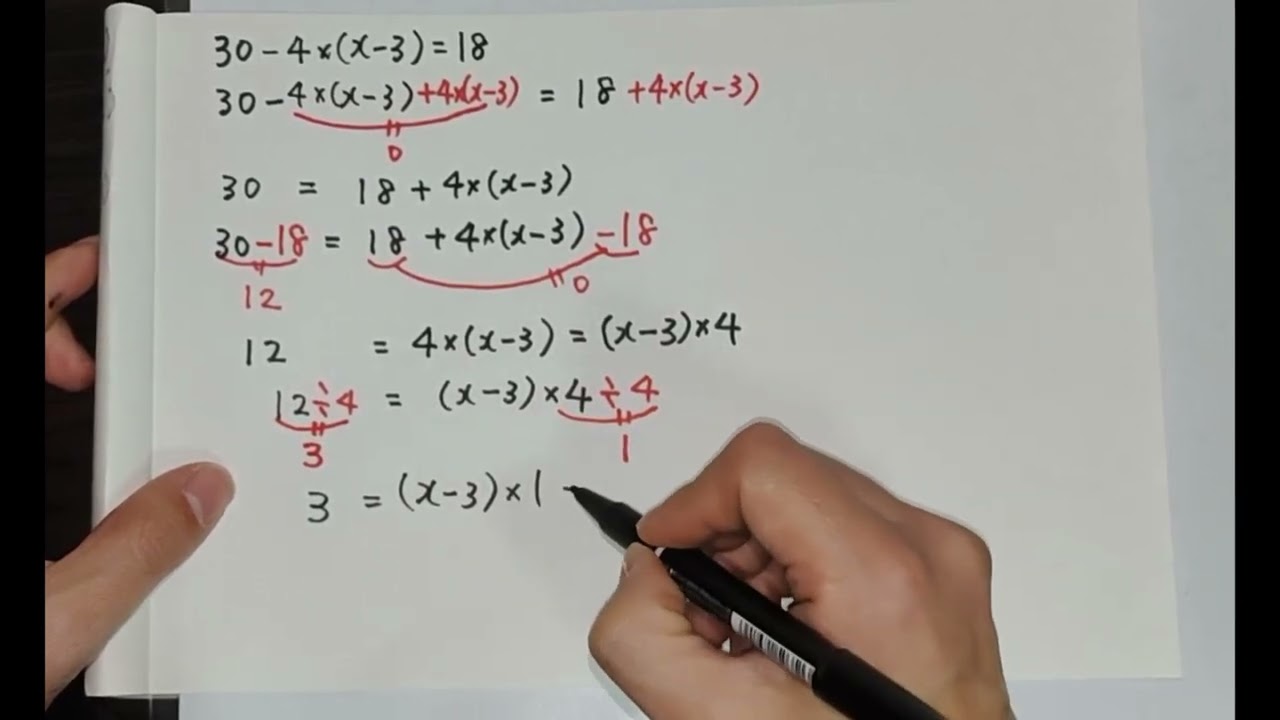 30-4×(x-3)=18
30-4×(x-3)+4×(x-3) = 18+4×(x-3)
0
30 = 18+4×(x-3)
30-18 = 18+4×(x-3)-18
12 0
12 = 4×(x-3)=(x-3)×4
12÷4 = (x-3)×4÷4
3 1
3 =(x-3)×1